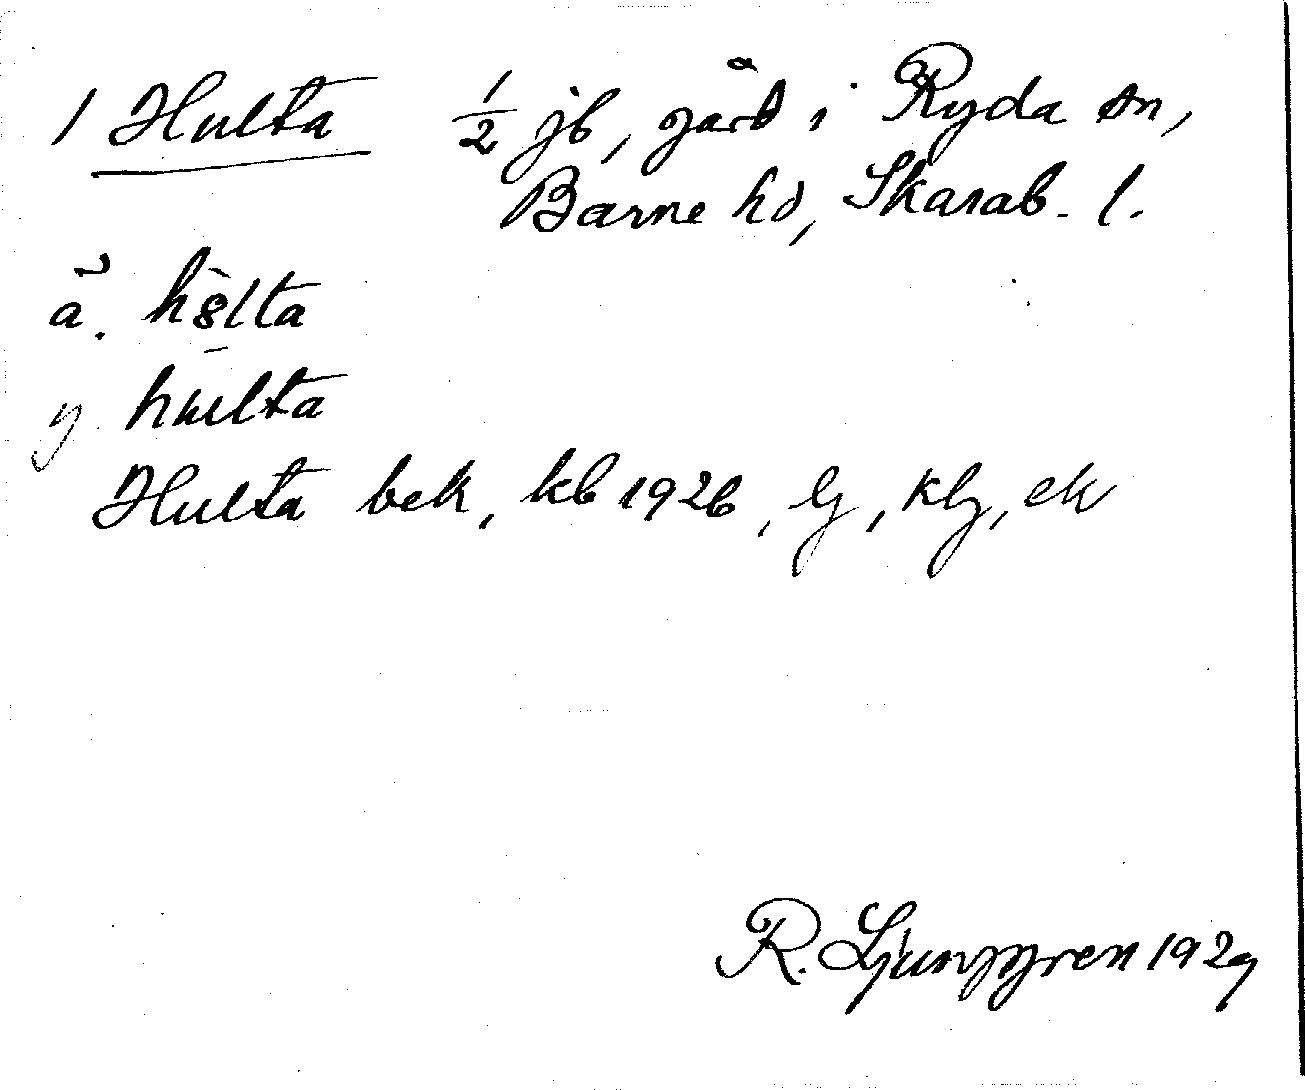 1 Hulta ½ jb, gård i Ryda sn,
Barne hd, Skarab. l.
ä. hålta
y hulta
Hulta bek, kb 1926, lg, klg, ek
R. Ljunggren 1929